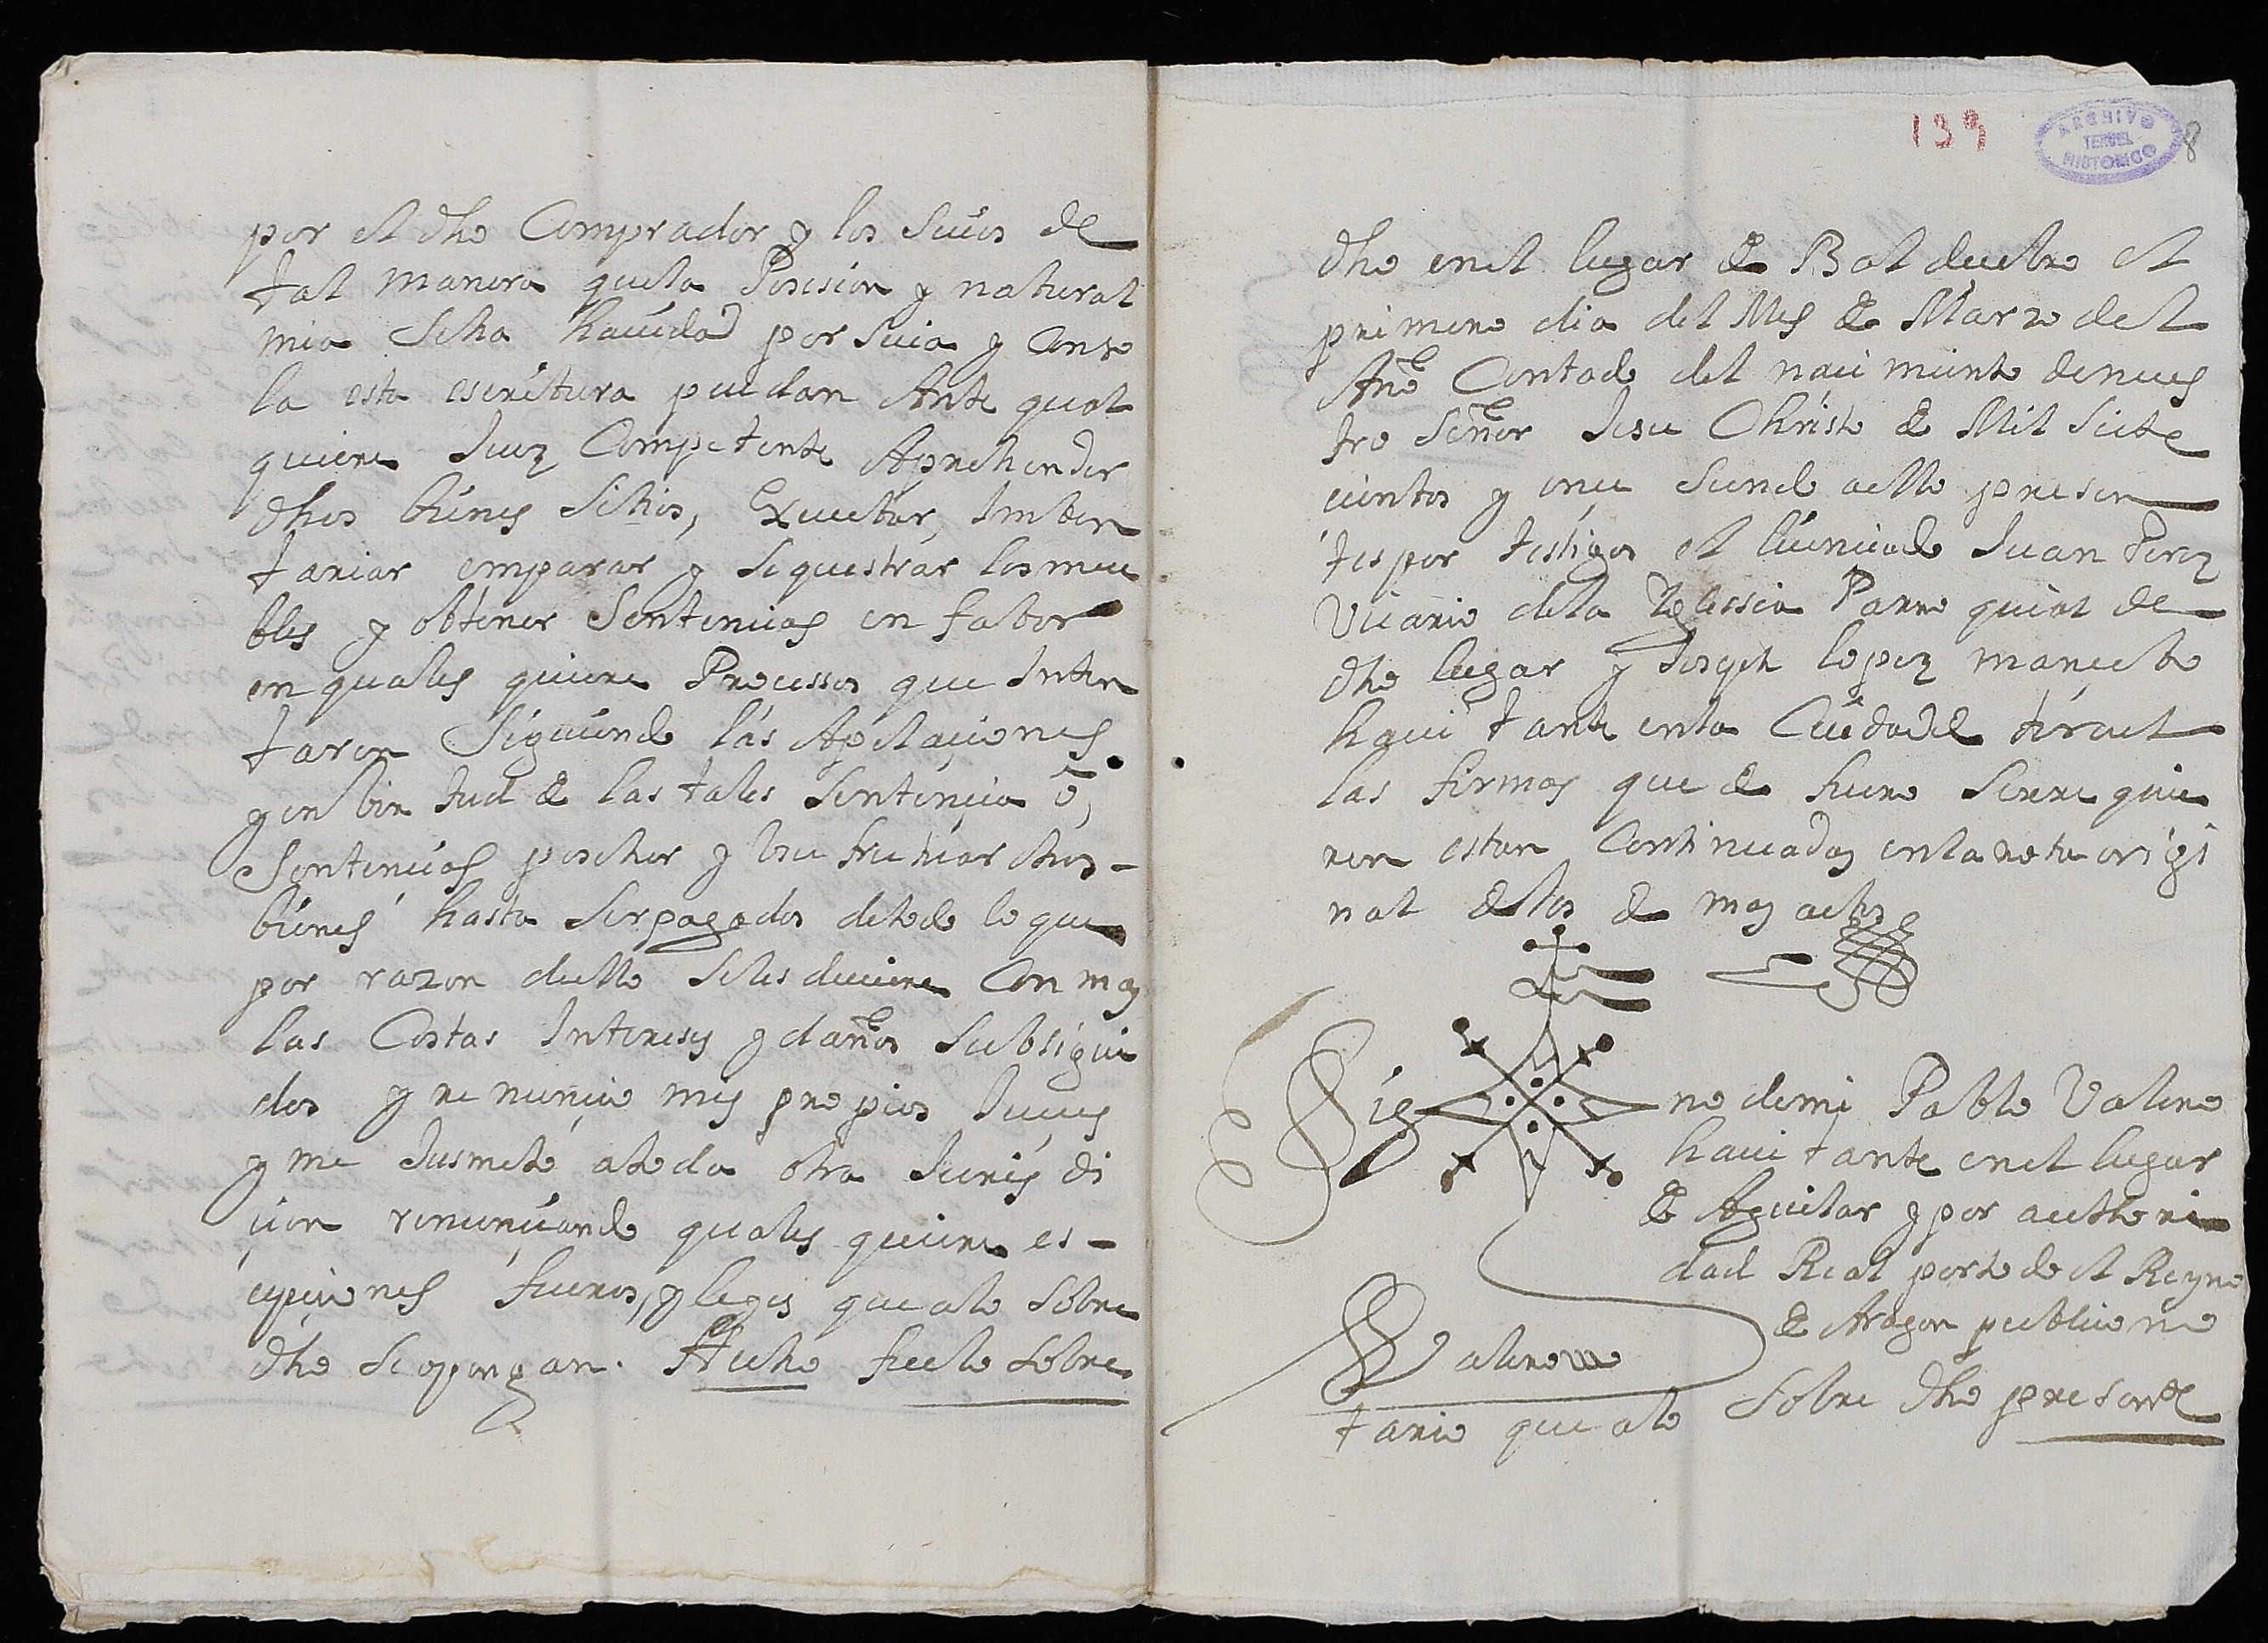 por el dho Comprador y los suios de
tal manera quela Posesion y natural
mia seha hauida por suia y Con so
la esta escritura puedan Ante qual
quiere Juez Competente Aprehender
dhos bienes sitios, Executar, Imben
tariar emparar y sequestrar los mue
bles y obtener Sentencias en fabor
en quales quiere Processos que Inten
taren Siguiendo las Apelaciones
y en bir tud de las tales Sentencia ô,
Sentencias poseher y Usufrutuar dhos
bienes hasta ser pagados detodo lo que
por razon dello seles deuiere Con mas
las Costas Intereses y daños subsigui
dos y renuncio mis propios Jueces
y me Jusmeto atoda otra Juris di
cion renunciando quales quiere es-
cepciones fueros, y leyes que alo sobre
dho se opongan. Hecho fue lo sobre
139
ARCHIVO
TERUEL
HISTORICO
8
dho enel lugar de Bal decebro el
primero dia del Mes de Marzo del
Año Contado del naci miento denues
tro Señor Jesu Christo de Mil Siete
cientos y once siendo aello presen
tes por testigos el licenciado Juan Perez
Vicario dela Iglessia Parro quial de
dho lugar y Joseph lopez mancebo
haui tante enla Ciudadde teruel
las firmas que de fuero se requie
ren estan Continuadas enla nota origi
nal destos de mas actos
Sig no demi Pablo Valero
haui tante enel lugar
de Aguilar y por authori
dad Real portodo el Reyno
de Aragon publico no
Valero
tario que alo sobre dho presente